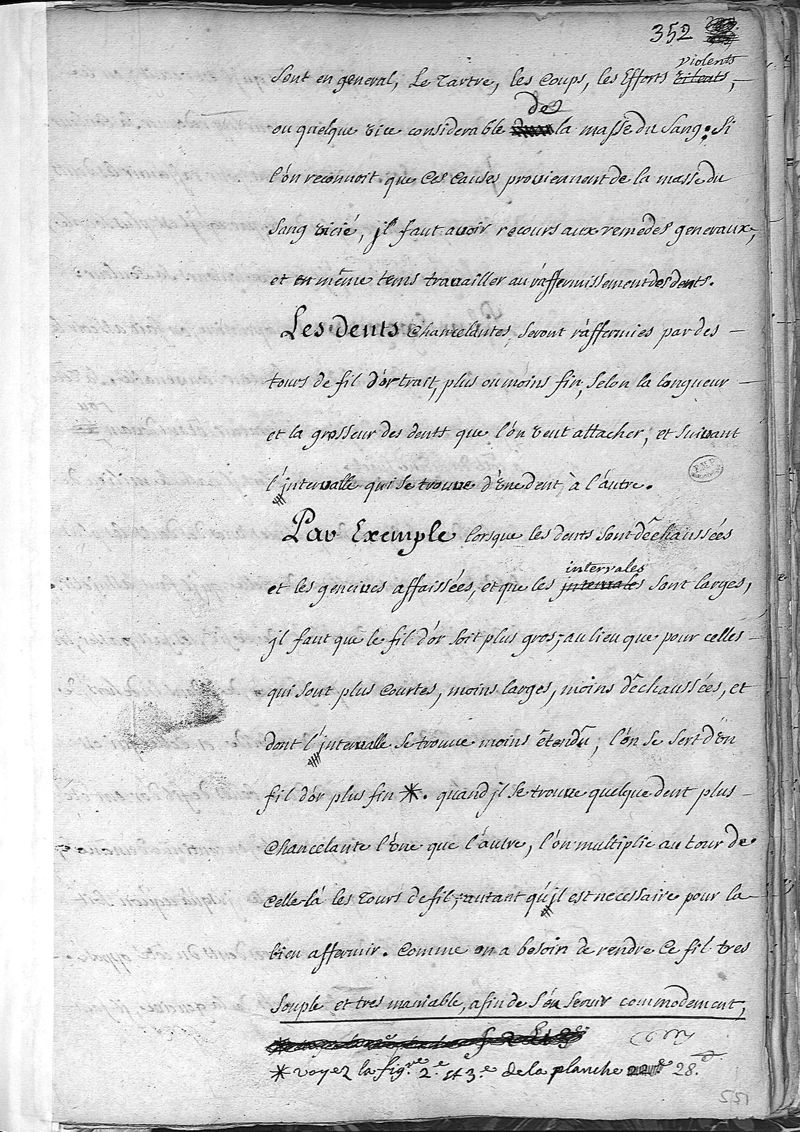 352
violents
sont en general, Le Tartre, les Coups, les Efforts
de
ou quelque vice considerable la masse du Sang; Si
l'on reconnoit que Ces Causes proviennent de la masse du
Sang vicié, jl faut avoir recours aux remedes generaux,
et en même tems travailler au raffermissement des dents.
Les dents Chancelantes, seront raffermies par des
tours de fil d'or trait, plus ou moins fin, selon la longueur
et la grosseur des dents que l'on veut attacher, et suivant
l'jntervalle qui se trouve d'une dent, à l'autre.
Par Exemple lorsque les dents sont déchaussées
intervales
et les gencives affaissées, et que les jntervales sont larges,
jl faut que le fil d'or soit plus gros; au lieu que pour celles
qui sont plus Courtes, moins larges, moins déchaussées, et
dont l'jntervalle se trouve moins étendu, l'on se sert d'un
fil d'or plus fin *. quand jl se trouve quelque dent plus
Chancelante l'une que l'autre, l'on multiplie au tour de
Celle-là les Tours de fil, autant qu'jl est necessaire pour la
bien affermir. Comme on a besoin de rendre Ce fil tres
souple et tres maniable, afin de s'en servir commodement,
* voyez la figre 2.e et 3.e de la planche 28.
551